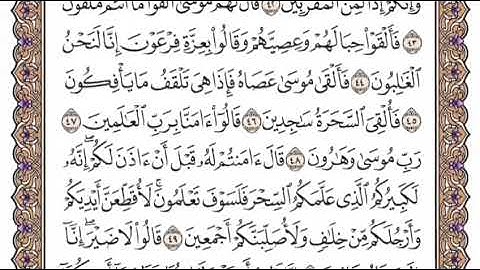 وَإِنَّكُمْ إِذًا لَّمِنَ ٱلْمُقَرَّبِينَ ٤٢ قَالَ لَهُم مُّوسَىٰٓ أَلْقُوا۟ مَآ أَنتُم مُّلْقُونَ
٤٣ فَأَلْقَوْا۟ حِبَالَهُمْ وَعِصِيَّهُمْ وَقَالُوا۟ بِعِزَّةِ فِرْعَوْنَ إِنَّا لَنَحْنُ
ٱلْغَٰلِبُونَ ٤٤ فَأَلْقَىٰ مُوسَىٰ عَصَاهُ فَإِذَا هِىَ تَلْقَفُ مَا يَأْفِكُونَ
٤٥ فَأُلْقِىَ ٱلسَّحَرَةُ سَٰجِدِينَ ٤٦ قَالُوٓا۟ ءَامَنَّا بِرَبِّ ٱلْعَٰلَمِينَ ٤٧
رَبِّ مُوسَىٰ وَهَٰرُونَ ٤٨ قَالَ ءَامَنتُمْ لَهُۥ قَبْلَ أَنْ ءَاذَنَ لَكُمْ ۖ إِنَّهُۥ
لَكَبِيرُكُمُ ٱلَّذِى عَلَّمَكُمُ ٱلسِّحْرَ فَلَسَوْفَ تَعْلَمُونَ ۚ لَأُقَطِّعَنَّ أَيْدِيَكُمْ
وَأَرْجُلَكُم مِّنْ خِلَٰفٍ وَلَأُصَلِّبَنَّكُمْ أَجْمَعِينَ ٤٩ قَالُوا۟ لَا ضَيْرَ ۖ إِنَّآ